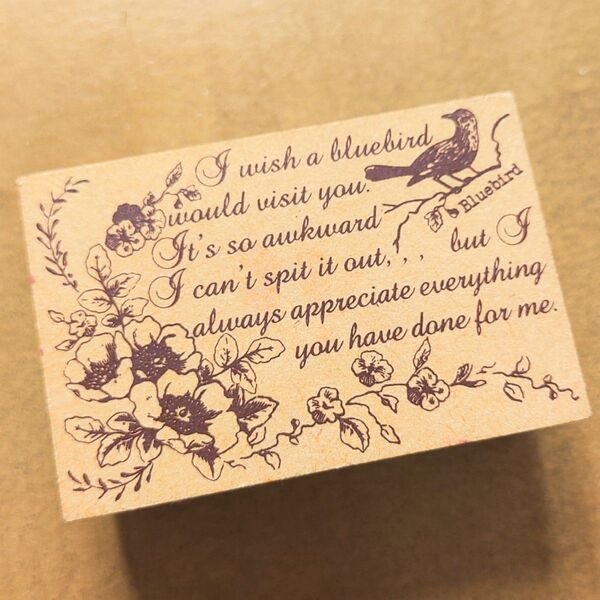 I wish a bluebird
would visit you.
Bluebird
It's so awkward
I can't spit it out, , , but I
always appreciate everything
you have done for me.